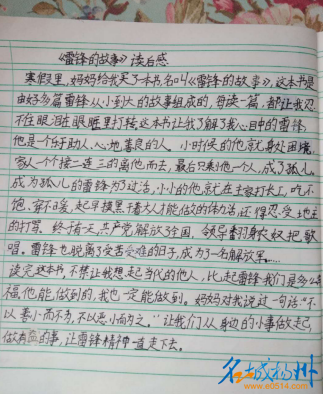 《雷锋的故事》读后感
寒假里,妈妈给我买了本书名叫《雷锋的故事》,这本书是
由好多篇雷锋从小到大的故事组成的,每读一篇,都让我忍
不住眼泪在眼眶里打转。这本书让我了解了我心目中的雷锋,
他是个乐于助人、心地善良的人。小时侯的他就家庭困境,
家人一个接二连三的离他而去,最后只剩他一个人,成了孤儿。
成为孤儿的雷锋为了过活,小小的他就在主家打长工,吃不
饱,穿不暖,起早摸黑干着大人才能做的体力活,还得忍受地主
的打骂。终于有一天,共产党解放了全国,领导翻身农奴把歌
唱。雷锋也脱离了受苦受难的日子,成为了一名解放军……
读完这本书,不禁让我想起当代的他人,比起雷锋我们是多么幸
福,他能做到的,我也一定能做到。妈妈对我说过一句话“不
以善小而不为,不以恶小而为之。”让我们从身边的小事做起,
做有益的事,让雷锋精神一直走下去。
名城扬州
www.e0514.com